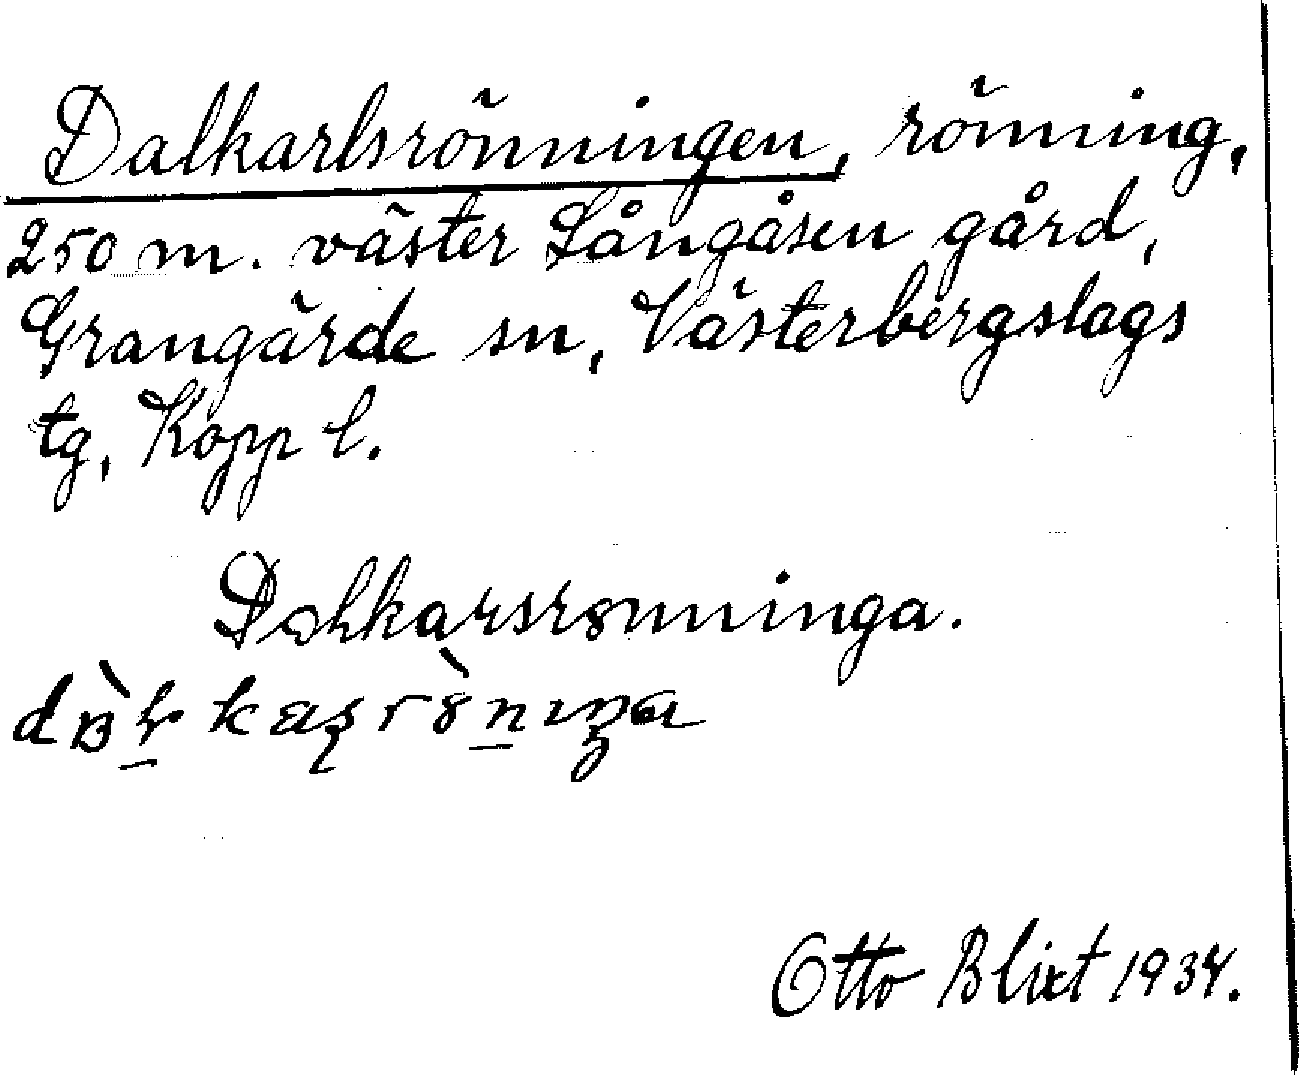 Dalkarlsrönningen, rönning,
250 m. väster Långåsen gård,
Grangärde sn, Västerbergslags
tg, Kopp l.
Dahkarsrönninga.
Otto Blixt 1934.